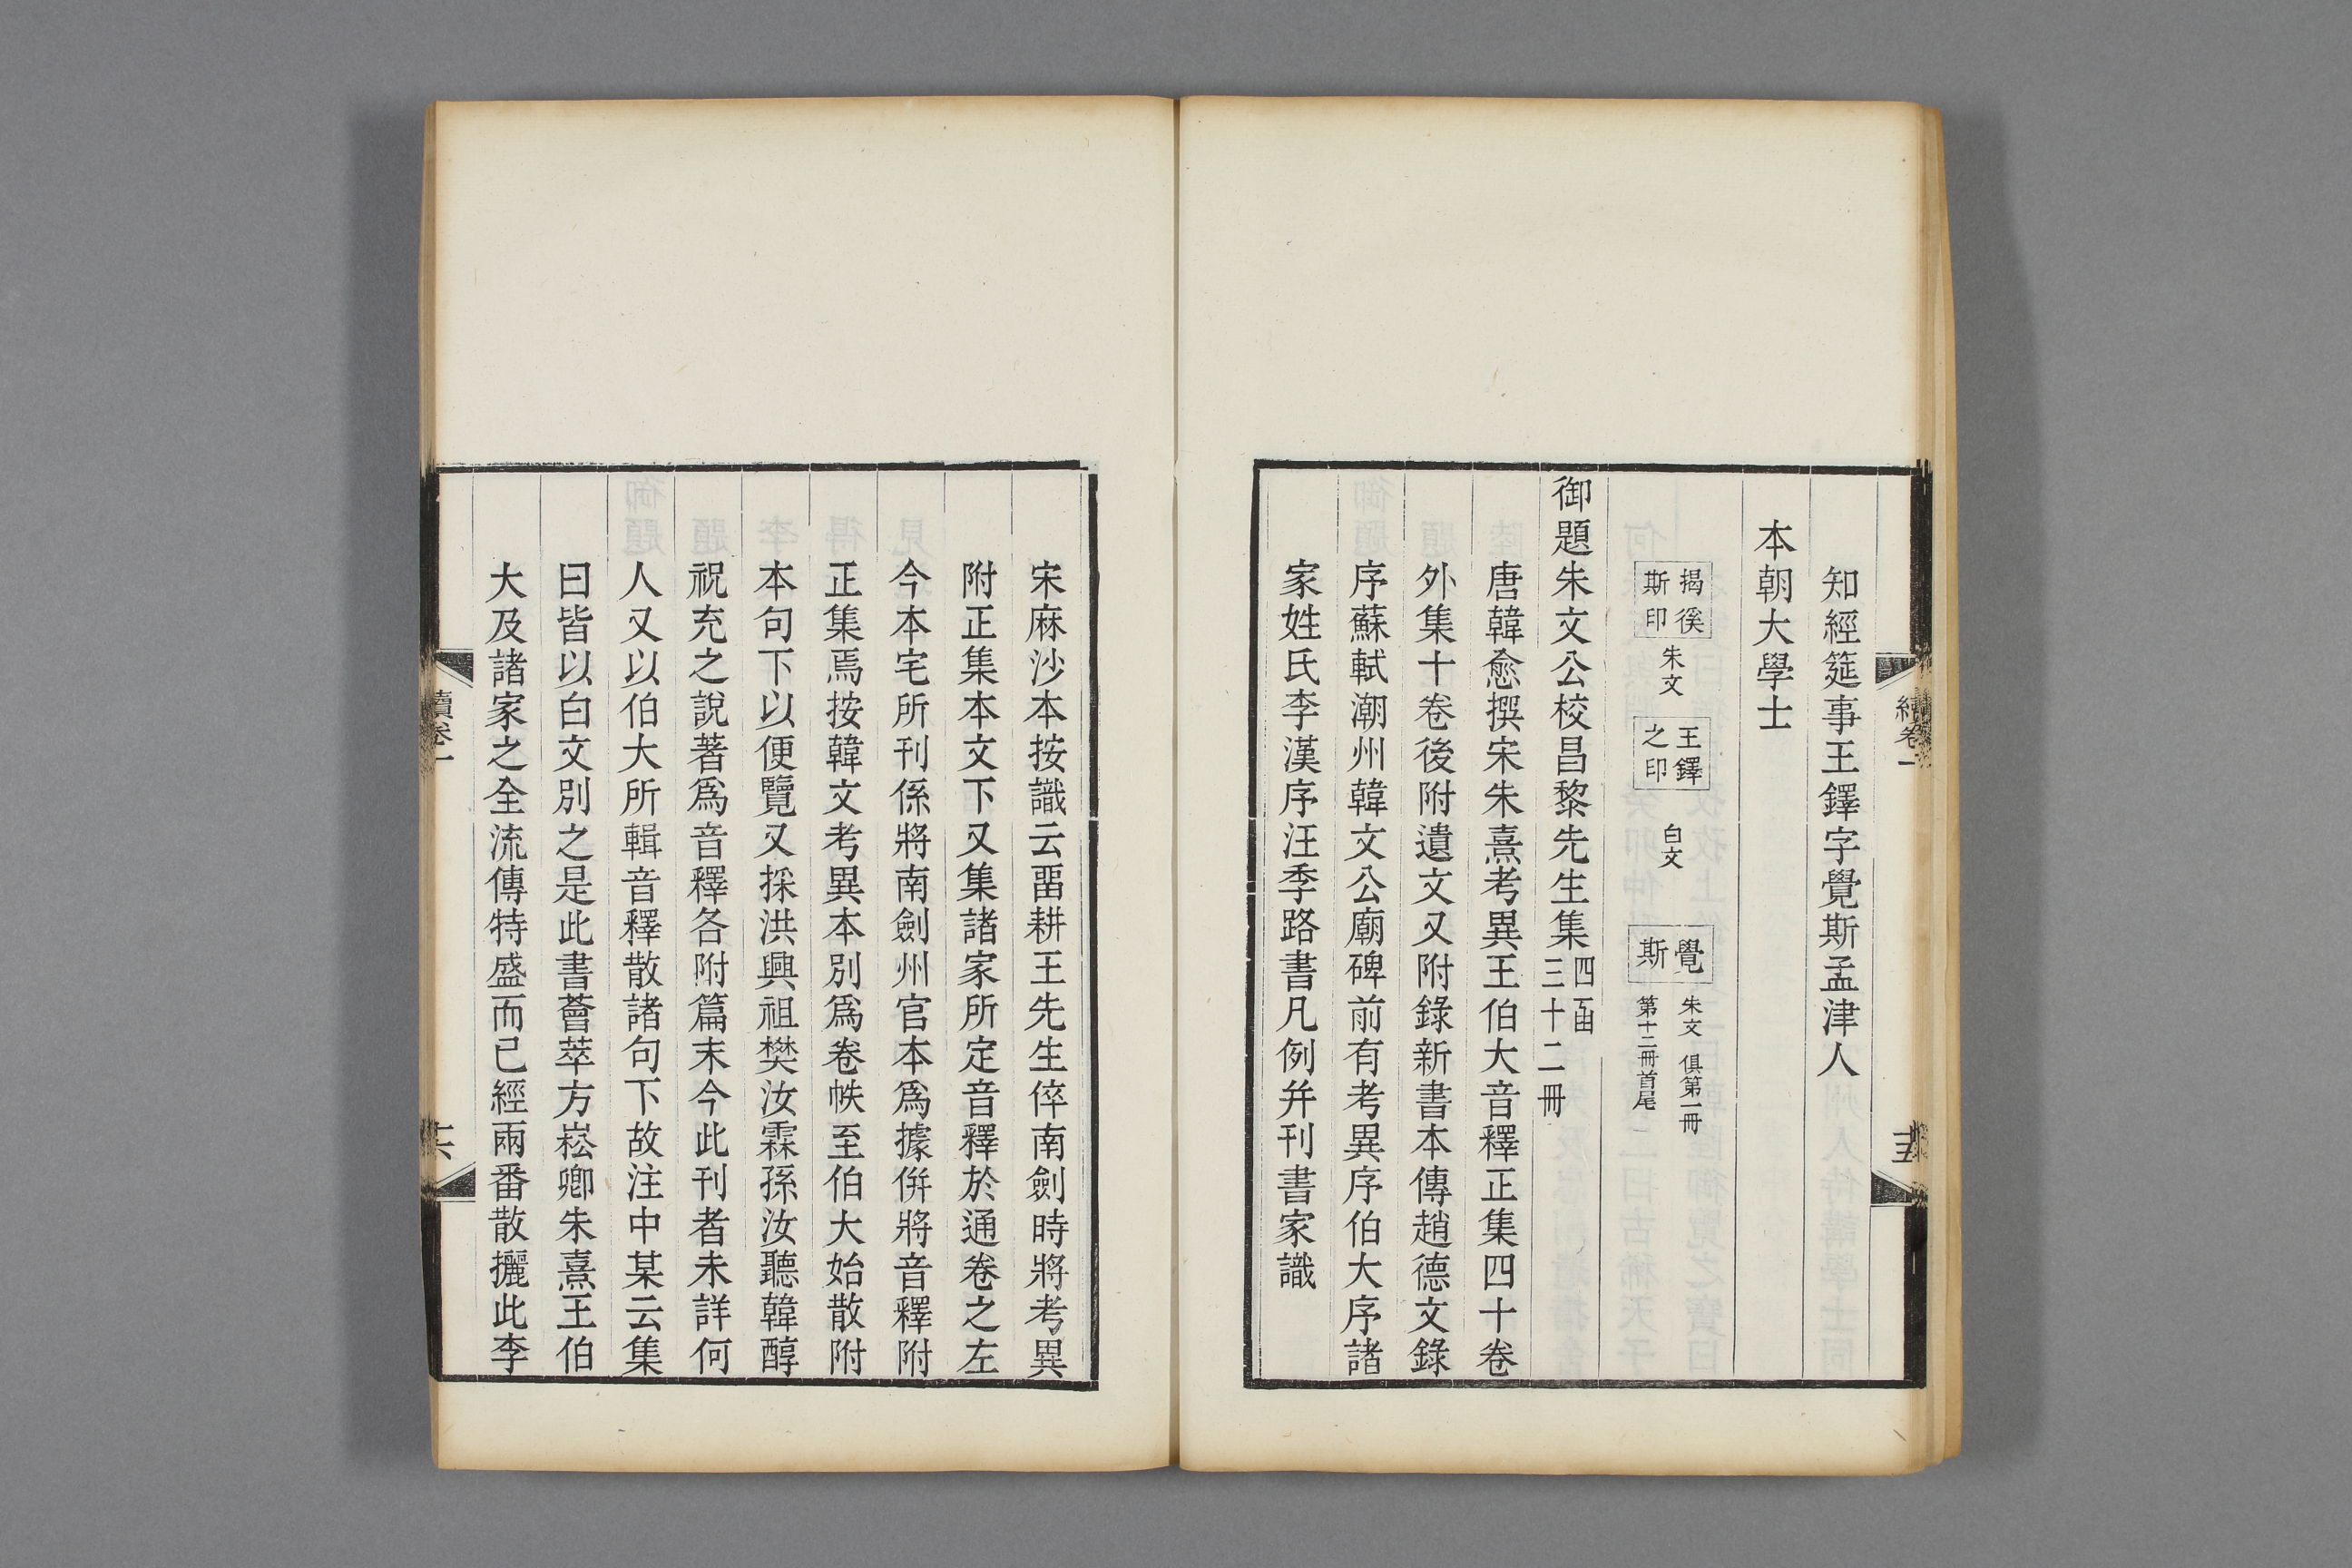 知經筵事王鐸字覺斯孟津人
本朝大學士
揭徯斯印 朱文 王鐸之印 白文 覺斯 朱文 俱第一冊第十二冊首尾
御題朱文公校昌黎先生集 四函三十二冊
唐韓愈撰宋朱熹考異王伯大音釋正集四十卷
外集十卷後附遺文又附錄新書本傳趙德文錄
序蘇軾潮州韓文公廟碑前有考異序伯大序諸
家姓氏李漢序汪季路書凡例并刊書家識
續卷一
十五
宋麻沙本按識云畱耕王先生倅南劍時將考異
附正集本文下又集諸家所定音釋於通卷之左
今本宅所刊係將南劍州官本爲據併將音釋附
正集焉按韓文考異本別爲卷帙至伯大始散附
本句下以便覽又採洪興祖樊汝霖孫汝聽韓醇
祝充之說著爲音釋各附篇末今此刊者未詳何
人又以伯大所輯音釋散諸句下故注中某云集
曰皆以白文別之是此書薈萃方崧卿朱熹王伯
大及諸家之全流傳特盛而已經兩番散攦此李
續卷一
十六